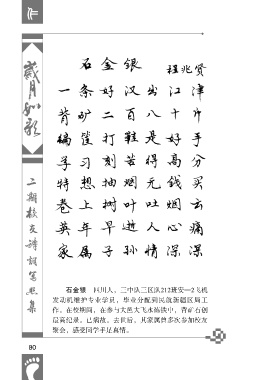 石金银
程兆贤
一条好汉出江津
背矿二百八十斤
编筐打鞋是好手
学习刻苦得高分
特想抽烟无钱买
卷上树叶吐烟云
英年早逝人心痛
家属子孙情深深
歲月如歌
二期校友诗词写照集
石金银 四川人，三中队三区队212班安—2飞机
发动机维护专业学员，毕业分配到民航新疆区局工
作。在校期间，在参与大邑大飞水炼铁中，背矿石创
最高纪录。已病故。去世后，其家属曾多次参加校友
聚会，感受同学手足真情。
80